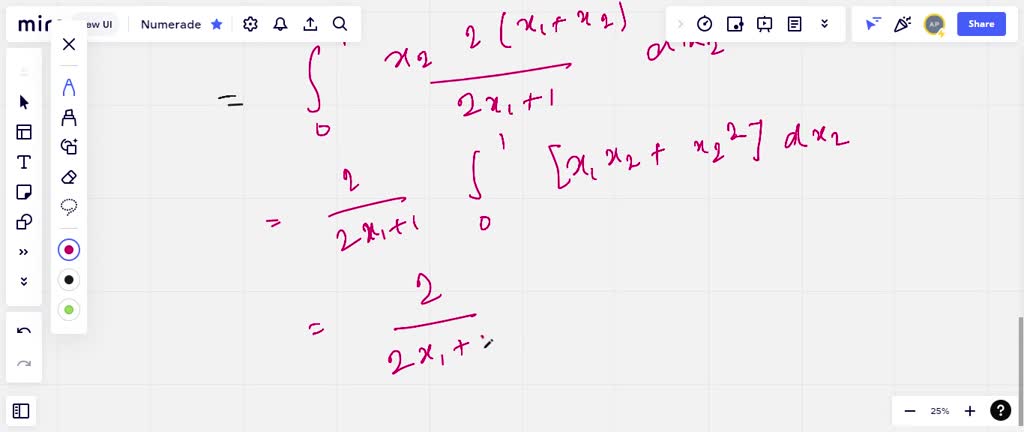 miro New UI Numerade AP Share
= ∫₀¹ x₂ 2(x₁+x₂)/(2x₁+1) dx₂
= 2/(2x₁+1) ∫₀¹ [x₁x₂ + x₂²] dx₂
= 2/(2x₁+
25%